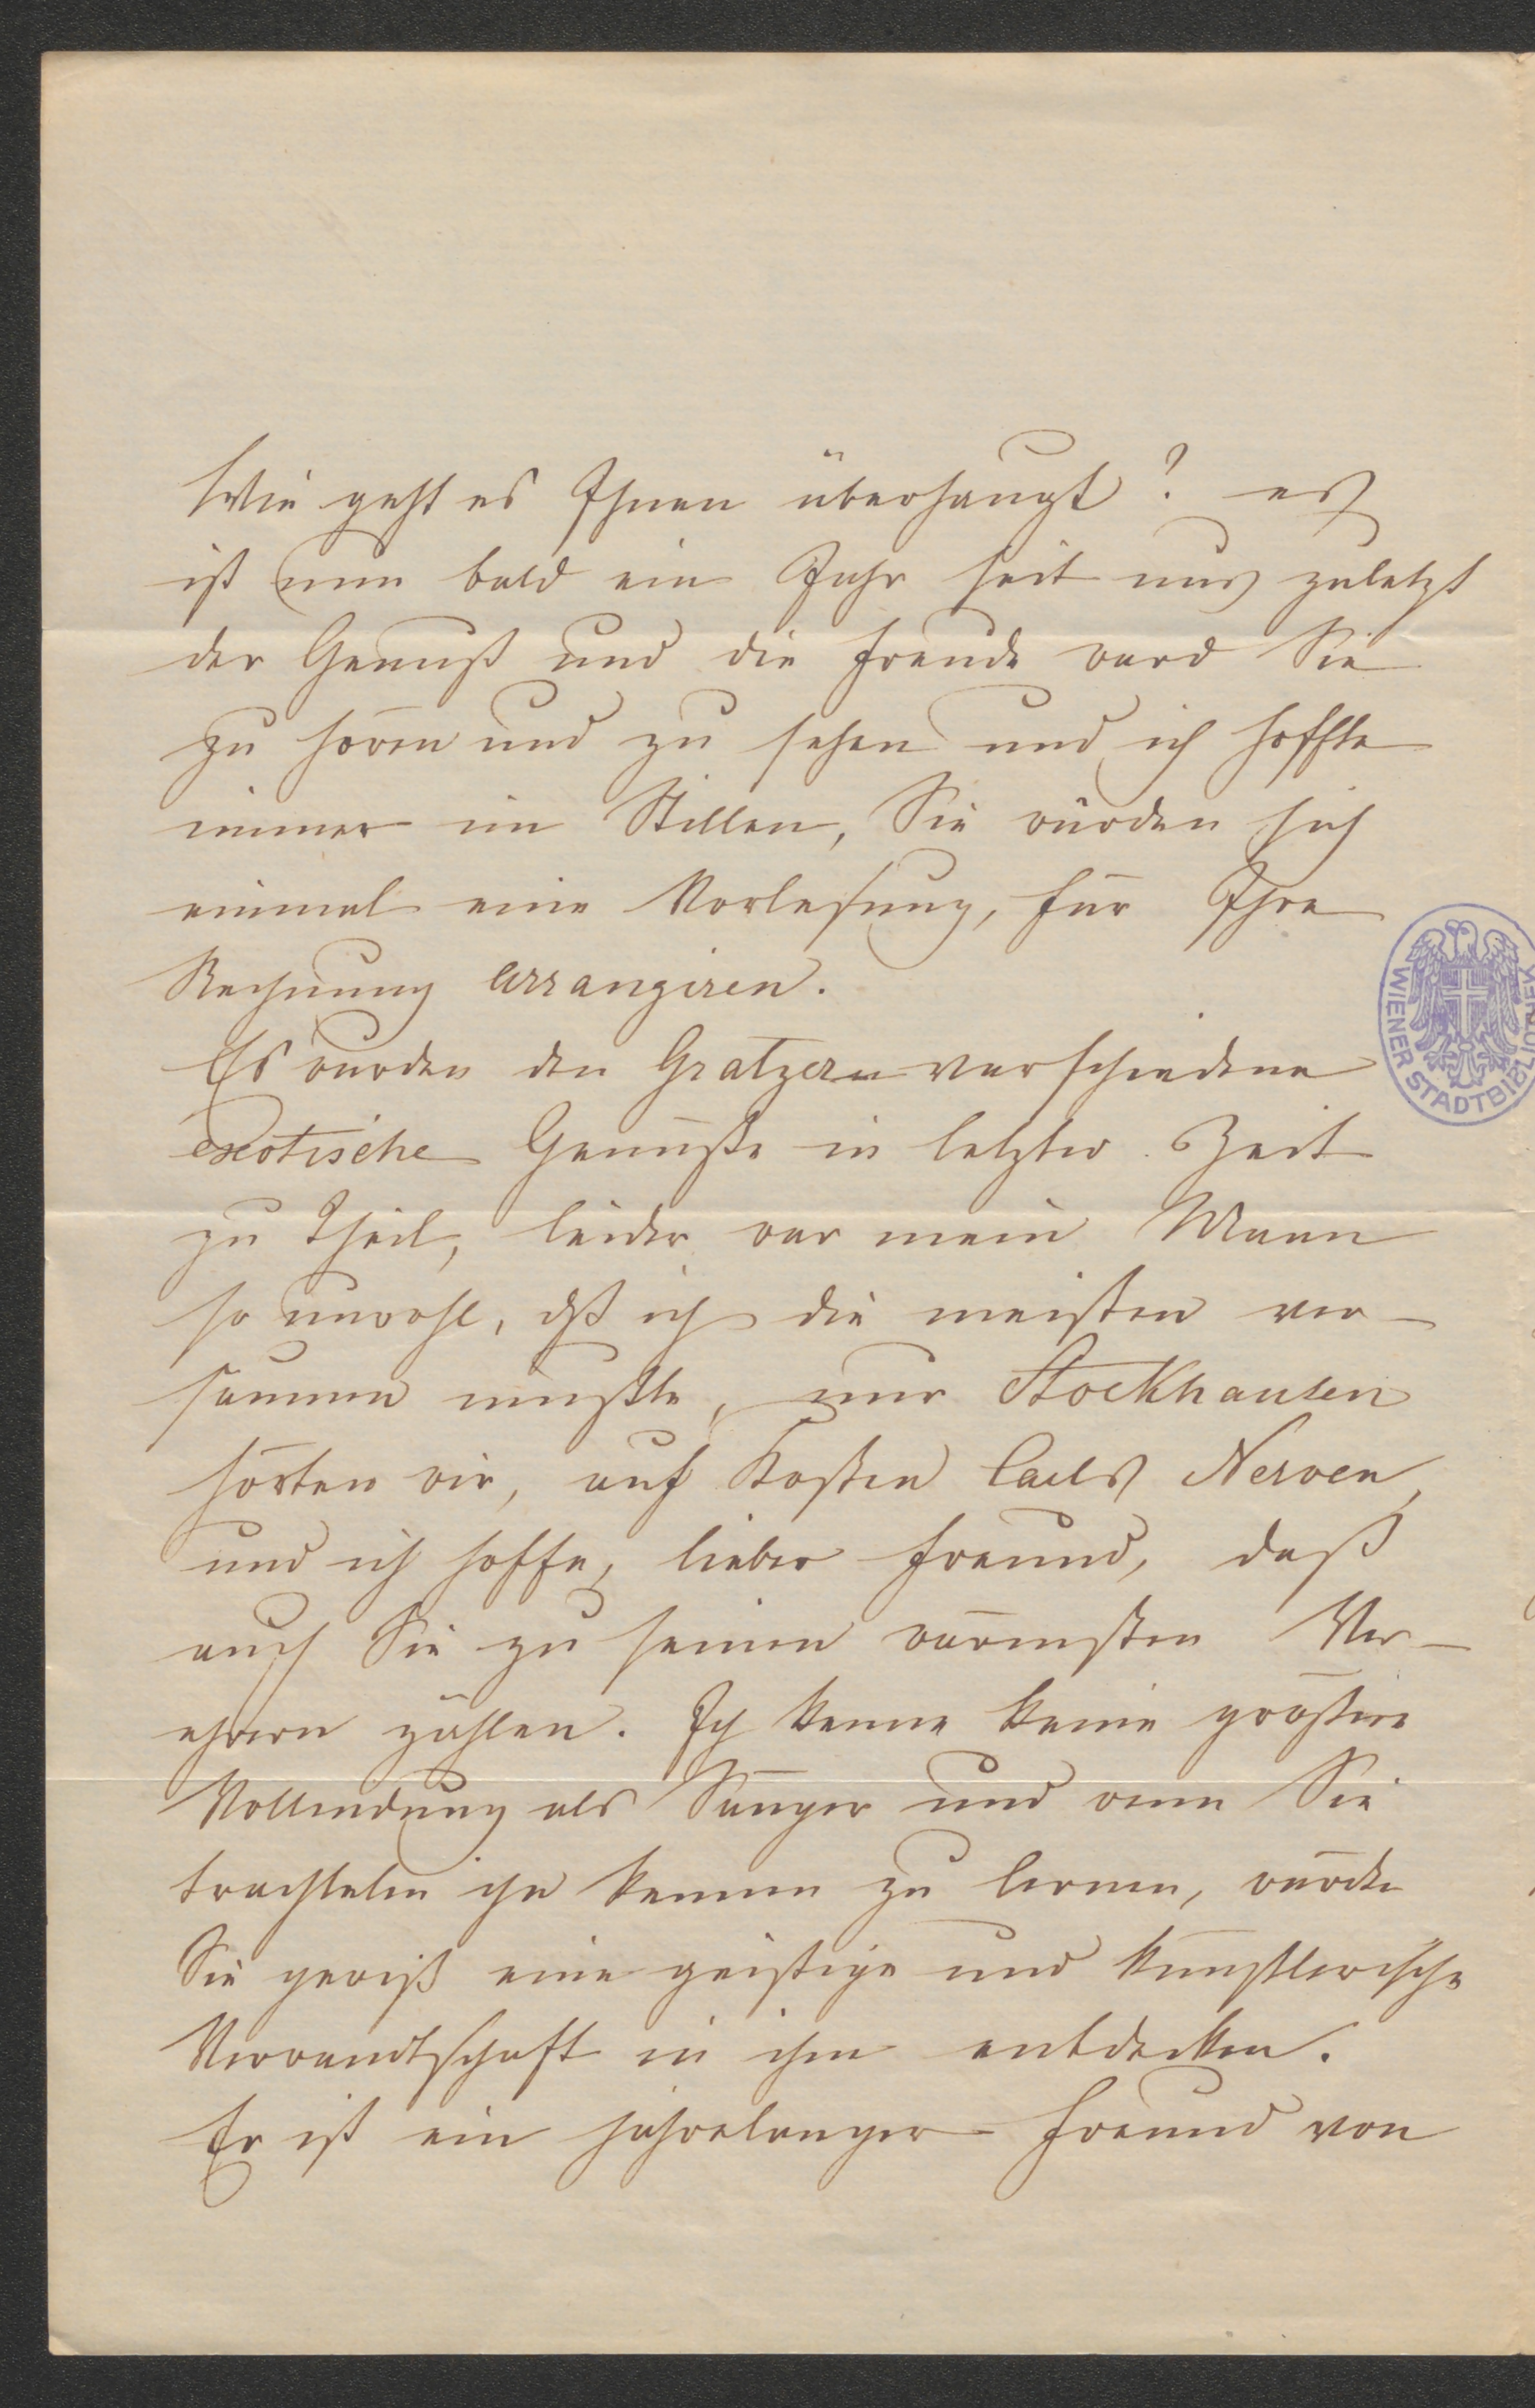 Wie geht es Ihnen überhaupt? es
ist nun bald ein Jahr seit uns zuletzt
der Genuß und die Freude ward Sie
zu hören und zu sehen und ich hoffte
immer im Stillen, Sie würden sich
einmal eine Vorlesung, für Ihre
Rechnung arrangiren.
Es wurden den Gratzern verschiedene
exotische Genüße in letzter Zeit
zu Theil, leider war mein Mann
so unwohl, dß ich die meisten ver-
säumen mußte, nur Stockhausen
hörten wir, auf Kosten Carls Nerven,
und ich hoffe, lieber Freund, daß
auch Sie zu seinen wärmsten Ver-
ehrern zählen. Ich kenne keine größere
Vollendung als Sänger und wenn Sie
trachteten ihn kennen zu lernen, würden
Sie gewiß eine geistige und künstlerische
Verwandtschaft in ihm entdecken.
Er ist ein jahrelanger Freund von
WIENER STADTBIBLIOTHEK